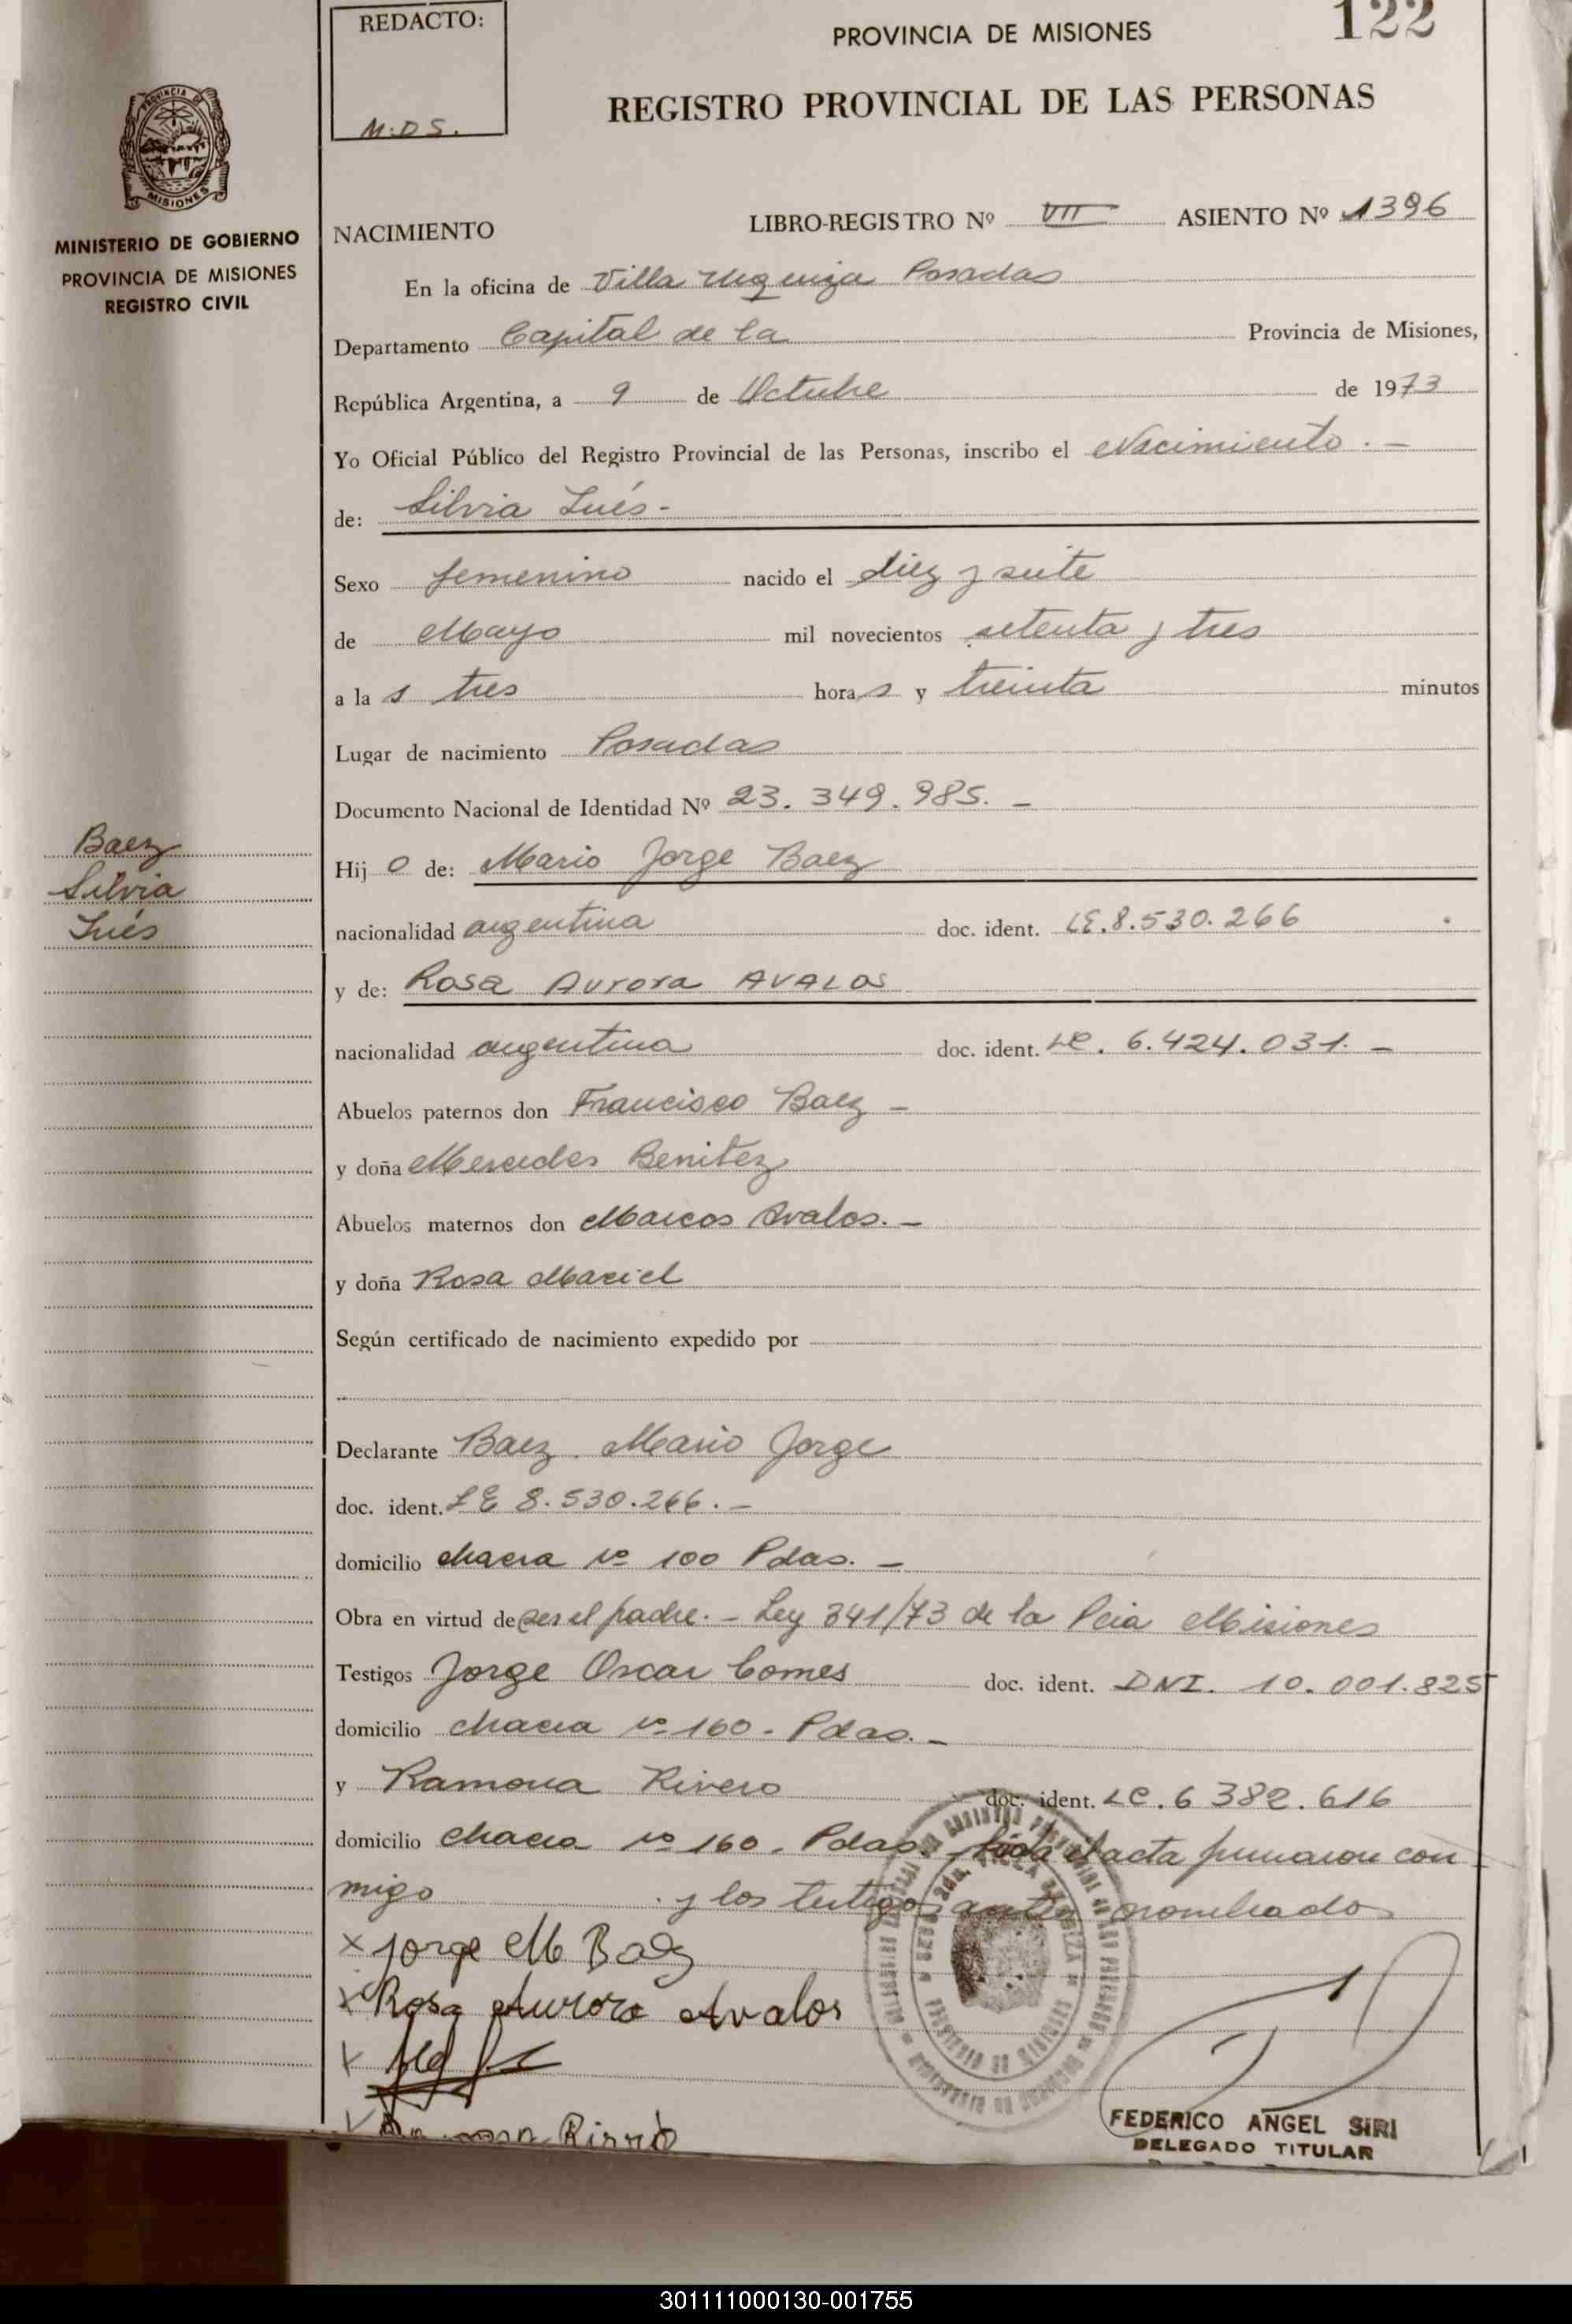 REDACTO:
M.D S.
PROVINCIA DE MISIONES
122
REGISTRO PROVINCIAL DE LAS PERSONAS
PROVINCIA DE
MISIONES
MINISTERIO DE GOBIERNO
PROVINCIA DE MISIONES
REGISTRO CIVIL
NACIMIENTO LIBRO-REGISTRO Nº VII ASIENTO Nº 1396
En la oficina de Villa Urquiza Posadas
Departamento Capital de la Provincia de Misiones,
República Argentina, a 9 de Octubre de 1973
Yo Oficial Público del Registro Provincial de las Personas, inscribo el Nacimiento. -
de: Silvia Inés -
Sexo femenino nacido el diez y siete
de Mayo mil novecientos setenta y tres
a las tres horas y treinta minutos
Lugar de nacimiento Posadas
Documento Nacional de Identidad Nº 23. 349. 985. -
Baez
Silvia
Inés
Hijo de: Mario Jorge Baez
nacionalidad argentina doc. ident. LE. 8.530.266
y de: Rosa Aurora AVALOS
nacionalidad argentina doc. ident. LC. 6.424.031. -
Abuelos paternos don Francisco Baez -
y doña Mercedes Benitez
Abuelos maternos don Marcos Avalos. -
y doña Rosa Maciel
Según certificado de nacimiento expedido por
Declarante Baez. Mario Jorge
doc. ident. LE 8.530.266. -
domicilio chacra nº 100 Pdas. -
Obra en virtud de ser el padre. - Ley 341/73 de la Pcia Misiones
Testigos Jorge Oscar Comes doc. ident. DNI. 10.001.825
domicilio chacra nº 160 - Pdas. -
y Ramona Rivero doc. ident. LC. 6 382. 616
domicilio chacra nº 160. Pdas. Leida el acta firmaron con
migo y los testigos antes nombrados
x Jorge M Baez
x Rosa Aurora Avalos
FEDERICO ANGEL SIRI
DELEGADO TITULAR
301111000130-001755